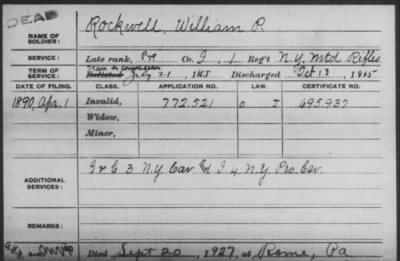 DEAD
NAME OF SOLDIER: Rockwell, William P.
SERVICE: Late rank, Pvt Co. I, 1 Reg't N.Y. Mtd Rifles
TERM OF SERVICE: Enlisted July 21, 1865 Discharged Oct 13, 1865
DATE OF FILING. CLASS. APPLICATION NO. LAW. CERTIFICATE NO.
1890, Apr. 1 Invalid, 772.521 695.937
Widow,
Minor,
ADDITIONAL SERVICES: I & C 3 N.Y. Cav I. 4 N.Y. Pro. Cav.
REMARKS:
Died Sept 20, 1927, at Rome, Pa